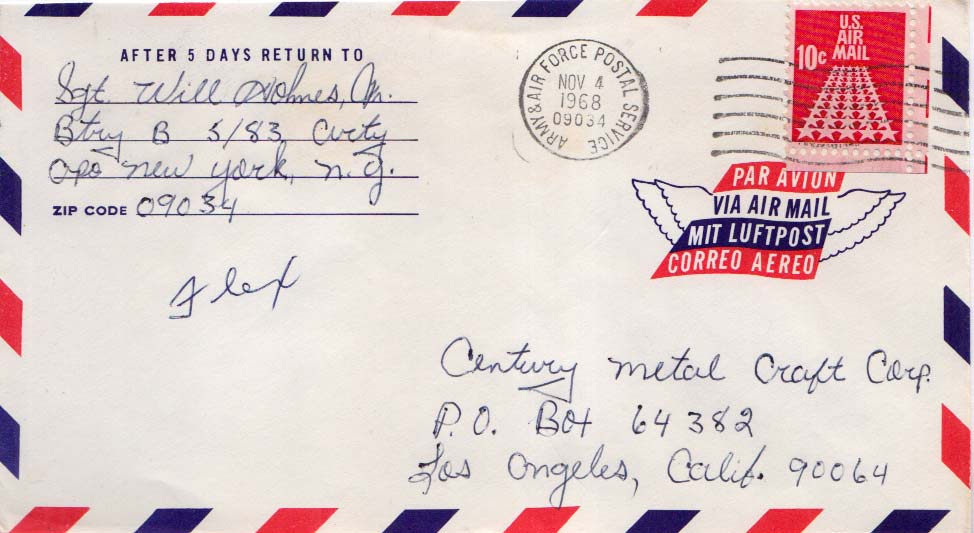 AFTER 5 DAYS RETURN TO
Sgt. Will Holmes, Jr.
Btry B 5/83 Arty
apo new york, n.y.
ZIP CODE 09034
Flex
ARMY & AIR FORCE POSTAL SERVICE
NOV 4
1968
09034
U.S.
AIR
MAIL
10c
PAR AVION
VIA AIR MAIL
MIT LUFTPOST
CORREO AEREO
Century Metal Craft Corp.
P.O. Box 64382
Los Angeles, Calif. 90064